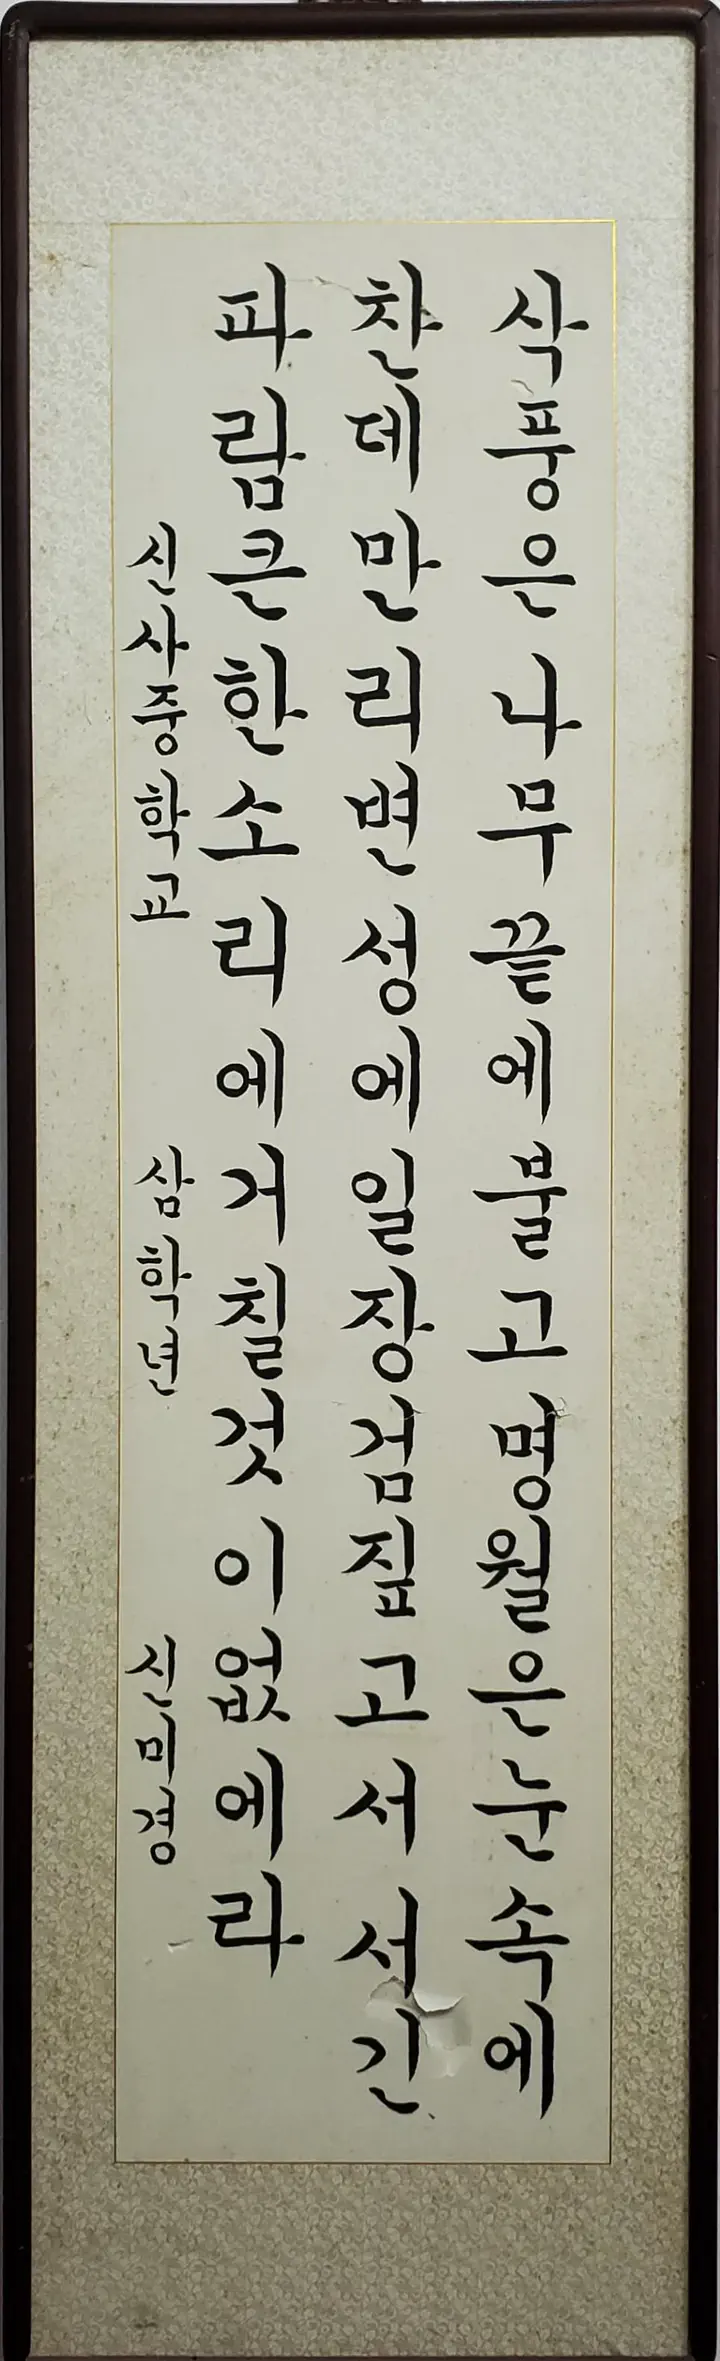 삭풍은나무끝에불고명월은눈속에
찬데만리변성에일장검짚고서서긴
파람큰한소리에거칠것이없에라
신사중학교 삼학년 신미경